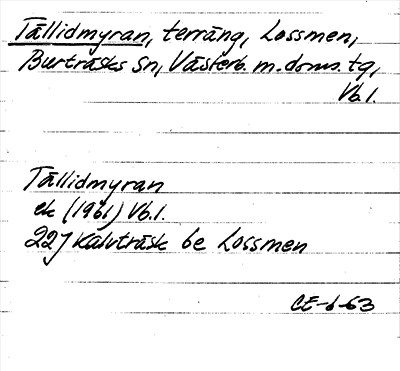 Tällidmyran, terräng, Lossmen,
Burträsks sn, Västerb. m. doms. tg,
Vb.l.
Tällidmyran
ek (1961) Vb.l.
22J Kalvträsk be Lossmen
CE-6-63